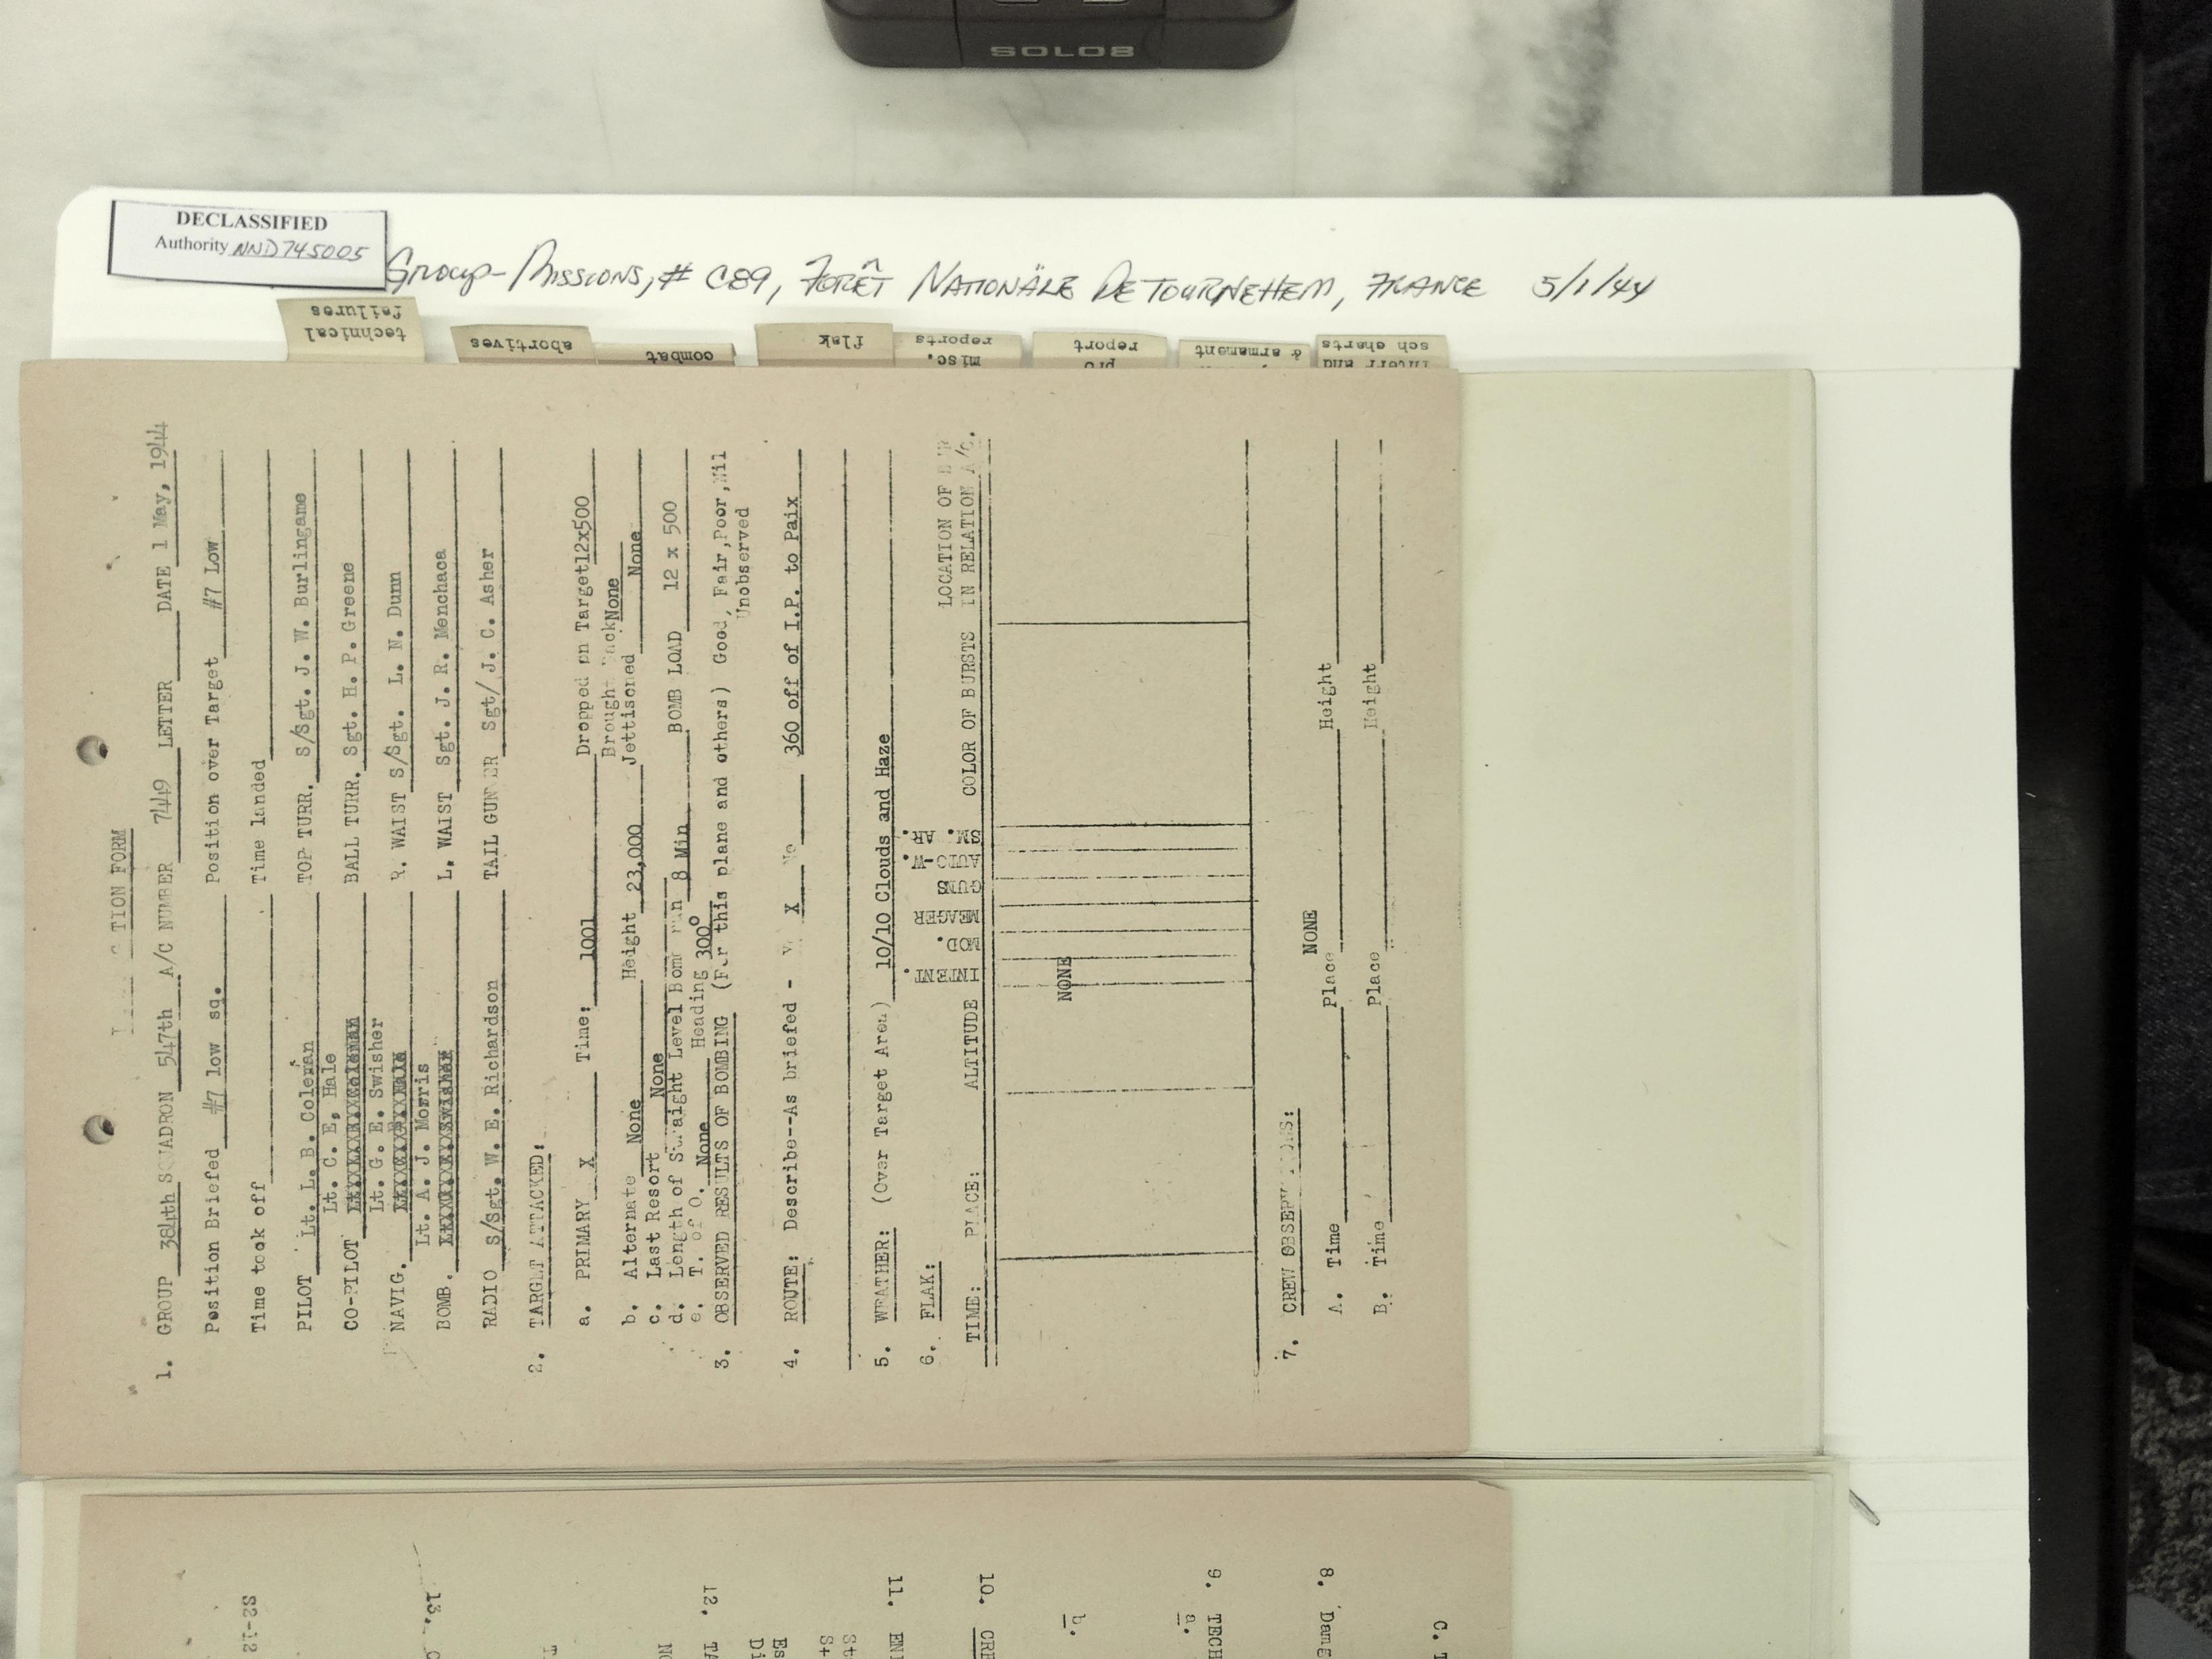 SOLO8
DECLASSIFIED
Authority NND745005
Group-Missions, # C89, Forêt Nationäle De Tournehem, France 5/1/44
technical
failures
abortives
combat
flak
misc.
reports
pro
report
& armament
interr and
sch charts
TION FORM
1. GROUP 384th SQUADRON 547th A/C NUMBER 7449 LETTER DATE 1 May, 1944
Position Briefed #7 low sq. Position over Target #7 Low
Time took off Time landed
PILOT Lt. L. B. Coleman TOP TURR. S/Sgt. J. W. Burlingame
Lt. C. E, Hale
CO-PILOT BALL TURR. Sgt. H. P. Greene
Lt. G. E. Swisher
NAVIG. R. WAIST S/Sgt. L. N. Dunn
Lt. A. J. Morris
BOMB. L. WAIST Sgt. J. R. Menchaca
RADIO S/Sgt. W. E. Richardson TAIL GUNNER Sgt/ J. C. Asher
2. TARGET ATTACKED:
a. PRIMARY X Time: 1001 Dropped on Target12x500
Brought Back None
b. Alternate None Height 23,000 Jettisoned None
c. Last Resort None
d. Length of Straight Level Bomb run 8 Min BOMB LOAD 12 x 500
e. T. of O. None Heading 300°
3. OBSERVED RESULTS OF BOMBING (For this plane and others) Good, Fair,Poor,Nil
Unobserved
4. ROUTE: Describe--As briefed - X No 360 off of I.P. to Paix
5. WEATHER: (Over Target Area) 10/10 Clouds and Haze
6. FLAK:
LOCATION OF
TIME: PLACE: ALTITUDE INTENT. MOD. MEAGER GUNS AUTO-W. SM. AR. COLOR OF BURSTS IN RELATION A/C.
NONE
7. CREW OBSERVATIONS:
NONE
A. Time Place Height
B. Time Place Height
C. T
8. Damag
9. TECH
a.
b.
10. CRE
11. ENE
12. TA
13.
S2-12